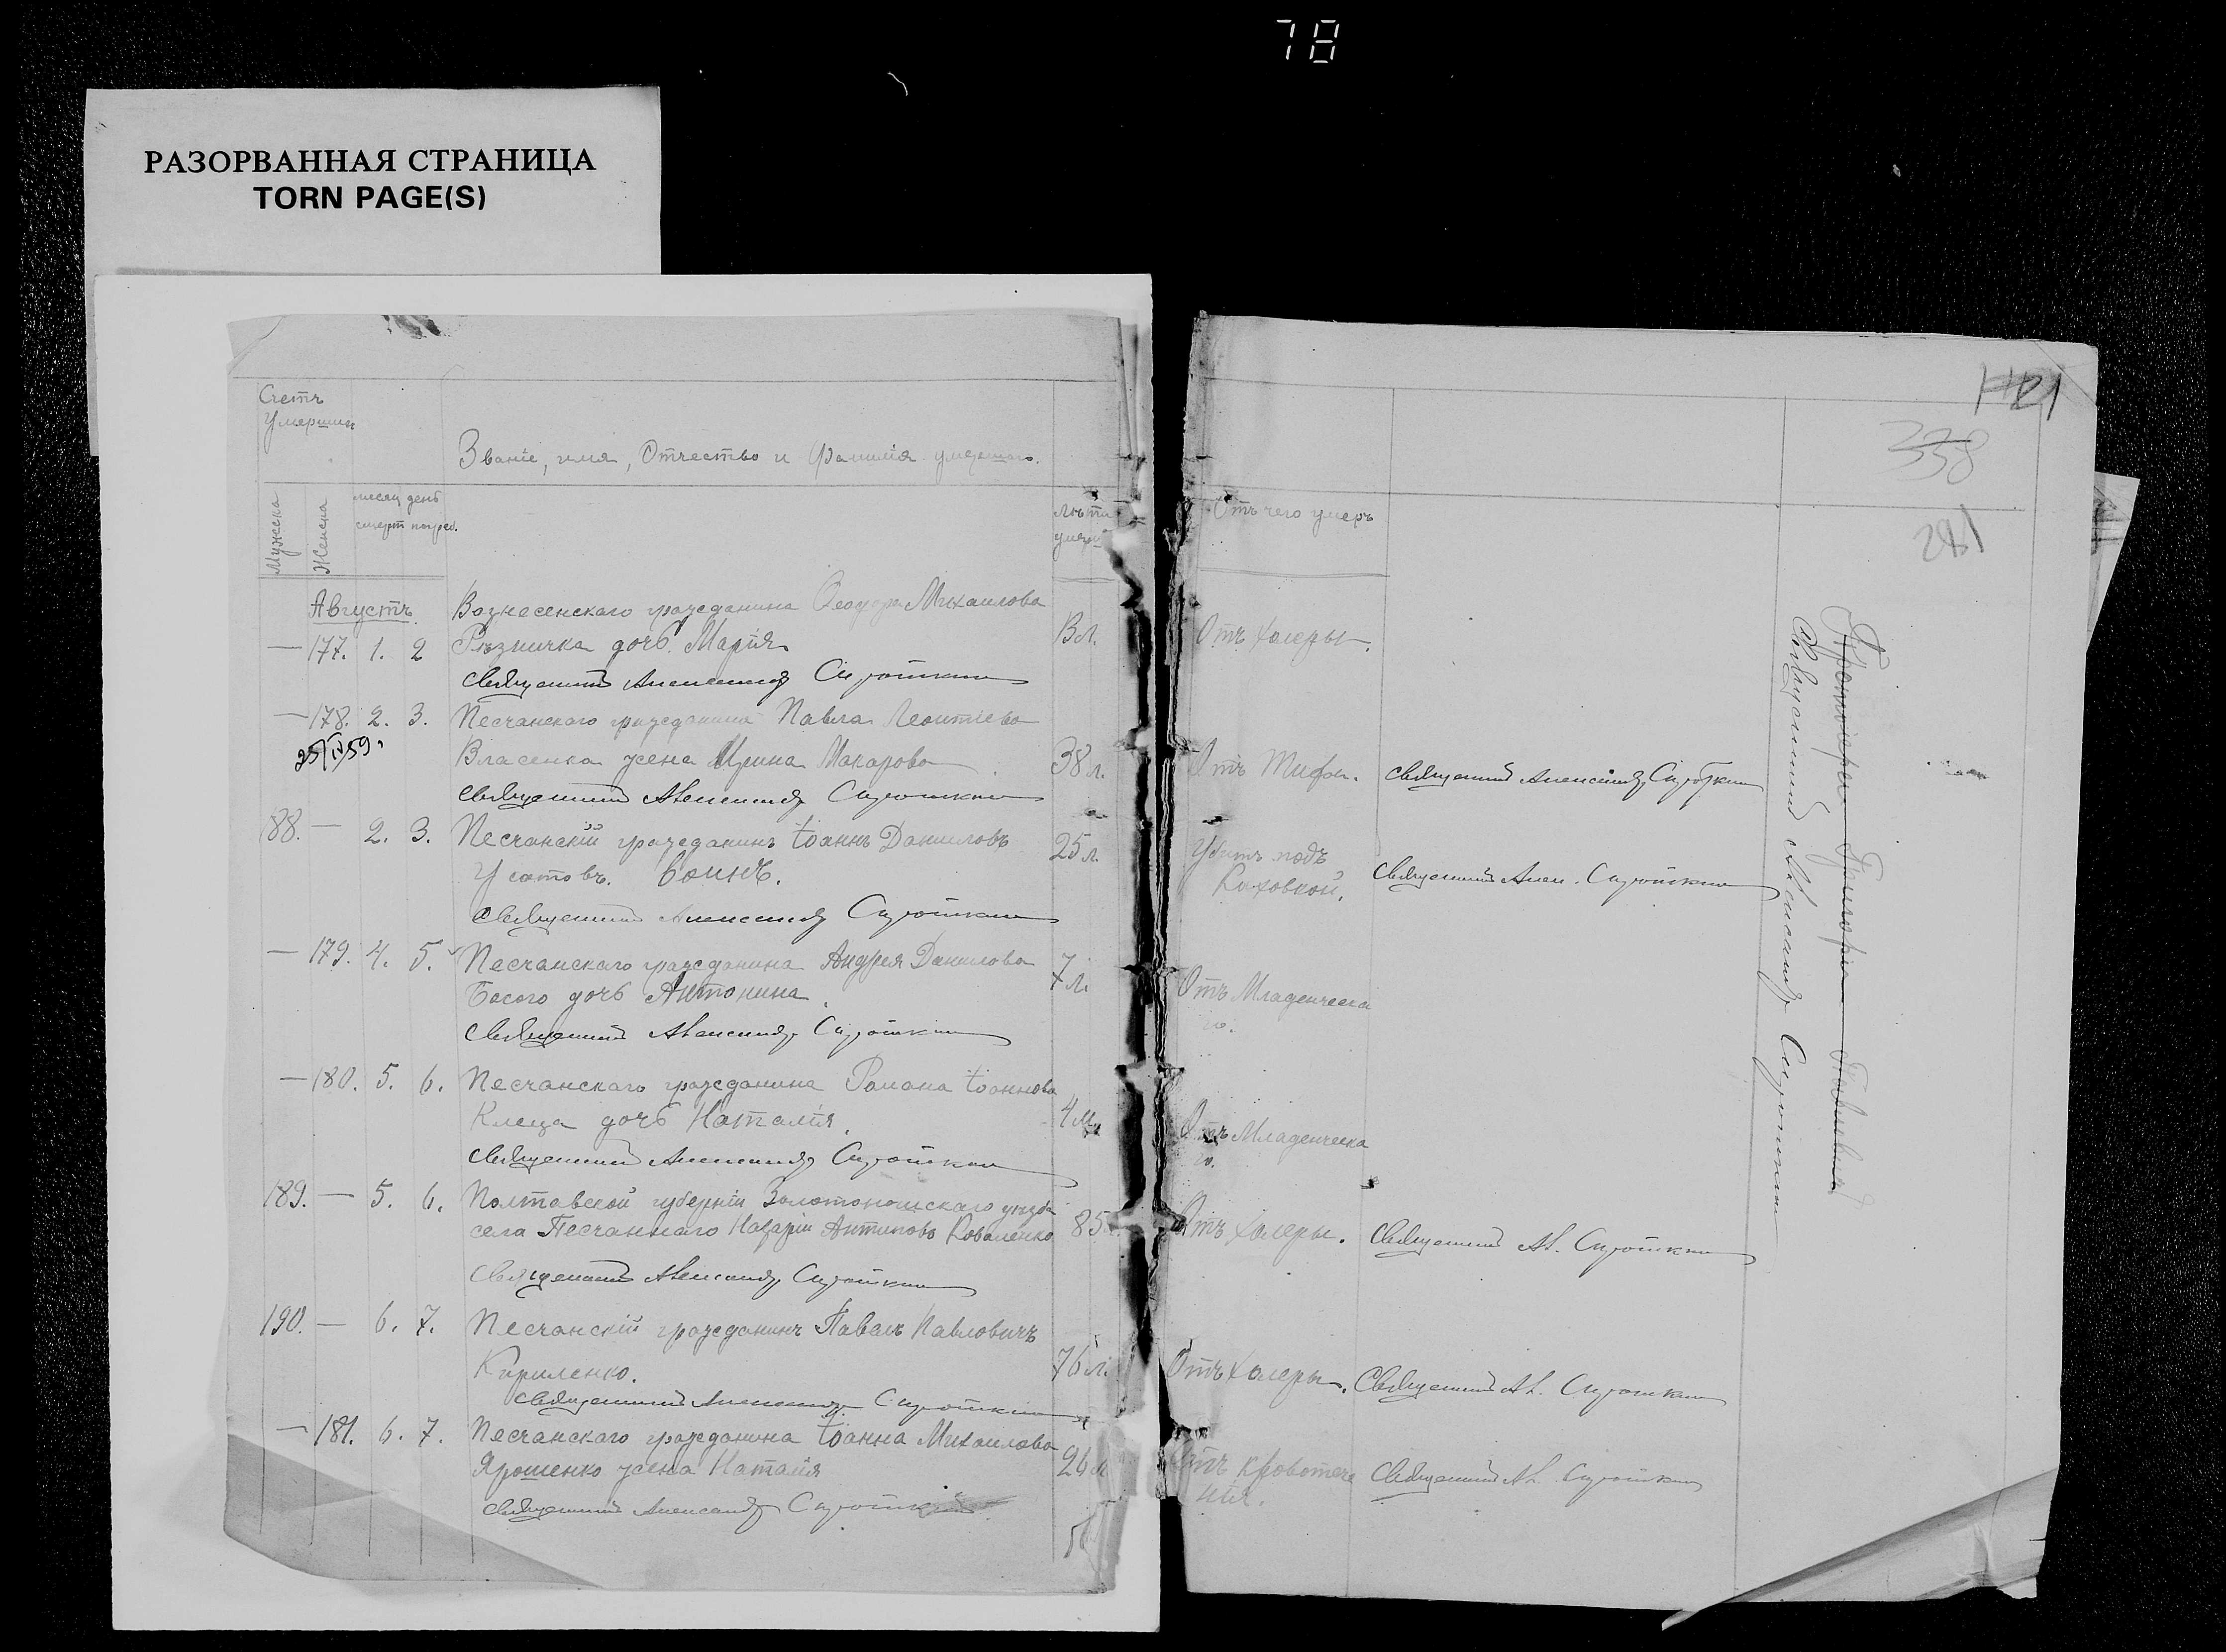 78
РАЗОРВАННАЯ СТРАНИЦА
TORN PAGE(S)
Счетъ
Умерших
Званіе, имя, Отчество и Фамилія умершаго.
Мужеска
Женска
месяц день
смерт погреб.
Лѣта
умерш
Отъ чего умеръ
338
281
Августъ.
Вознесенскаго гражданина Ѳеодора Михаилова
— 177. 1. 2 Рѣзничка дочь Марія
Отъ холеры.
Священникъ Александръ Сироткин
— 178. 2. 3. Песчанскаго гражданина Павла Леонтіева
Власенка жена Ирина Макарова 38 л. Отъ Тифа. Священникъ Александръ Сироткин
Священникъ Александръ Сироткин
188. — 2. 3. Песчанскій гражданинъ Іоаннъ Даниловъ 25 л. Убитъ подъ
Усатовъ. воинъ. Каховкой. Священникъ Алек. Сироткин
Священникъ Александръ Сироткин
— 179. 4. 5. Песчанскаго гражданина Андрея Данилова 7 л.
Босого дочь Антонина. Отъ Младенческа
го.
Священникъ Александръ Сироткин
— 180. 5. 6. Песчанскаго гражданина Романа Іоаннова
Клеща дочь Наталія. 4 м. Отъ Младенческа
го.
Священникъ Александръ Сироткин
189. — 5. 6. Полтавской губерніи Золотоношскаго уѣзда
села Песчаннаго Назарій Антиповъ Коваленко 85 Отъ Холеры. Священникъ Ал. Сироткин
Священникъ Александръ Сироткин
190. — 6. 7. Песчанскій гражданинъ Павелъ Павловичъ
Кириленко. 76 л. Отъ Холеры. Священникъ Ал. Сироткин
Священникъ Александръ Сироткин
— 181. 6. 7. Песчанскаго гражданина Іоанна Михаилова
Ярошенко жена Наталія 24 л Отъ кровотече
нія. Священникъ Ал. Сироткин
Священникъ Александръ Сироткин
Протоіерей Григорій
Священникъ Александръ Сироткин